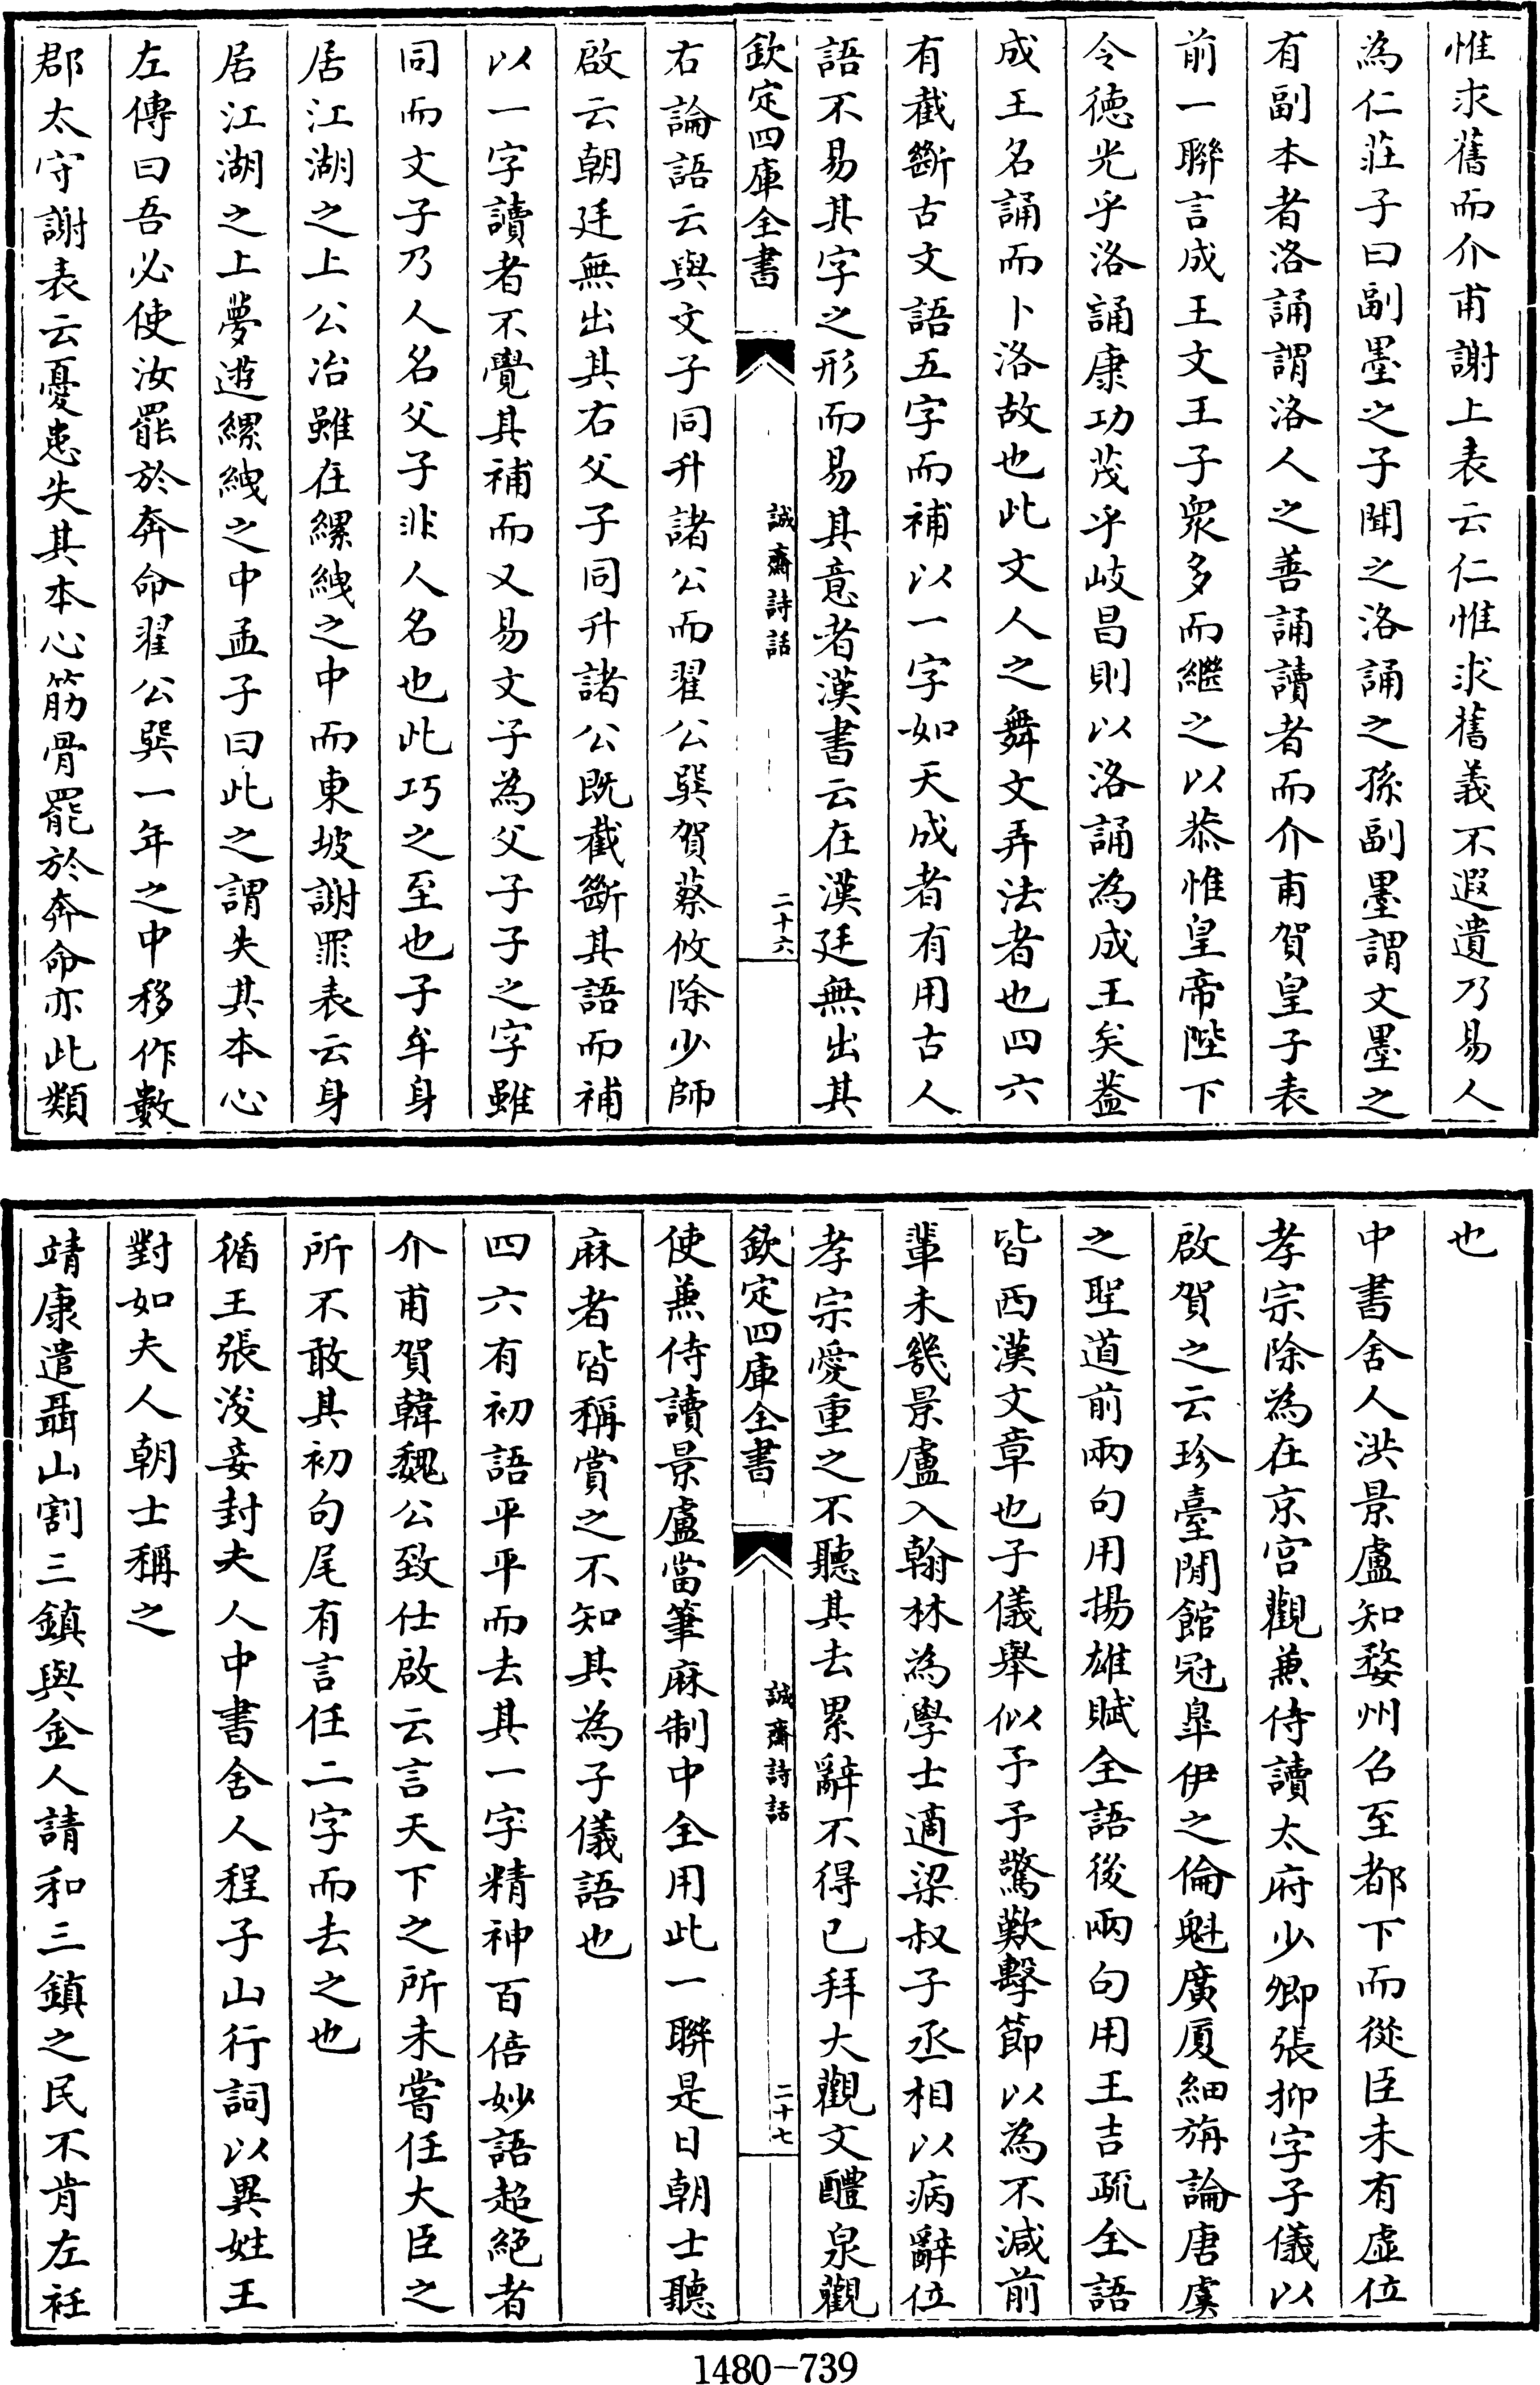 惟求舊而介甫謝上表云仁惟求舊義不遐遺乃易人
為仁莊子曰副墨之子聞之洛誦之孫副墨謂文墨之
有副本者洛誦謂洛人之善誦讀者而介甫賀皇子表
前一聯言成王文王子衆多而繼之以恭惟皇帝陛下
令德光乎洛誦康功茂乎岐昌則以洛誦為成王矣葢
成王名誦而卜洛故也此文人之舞文弄法者也四六
有截斷古文語五字而補以一字如天成者有用古人
語不易其字之形而易其意者漢書云在漢廷無出其
欽定四庫全書
誠齋詩話
二十六
右論語云與文子同升諸公而翟公巽賀蔡攸除少師
啟云朝廷無出其右父子同升諸公既截斷其語而補
以一字讀者不覺其補而又易文子為父子子之字雖
同而文子乃人名父子非人名也此巧之至也子牟身
居江湖之上公冶雖在縲絏之中而東坡謝罪表云身
居江湖之上夢遊縲絏之中孟子曰此之謂失其本心
左傳曰吾必使汝罷於奔命翟公巽一年之中移作數
郡太守謝表云憂患失其本心筋骨罷於奔命亦此類
也
中書舍人洪景盧知婺州召至都下而從臣未有虛位
孝宗除為在京宮觀兼侍讀太府少卿張抑字子儀以
啟賀之云珍臺閒館冠臯伊之倫魁廣厦細旃論唐虞
之聖道前兩句用揚雄賦全語後兩句用王吉疏全語
皆西漢文章也子儀舉似予予驚歎擊節以為不減前
輩未幾景盧入翰林為學士適梁叔子丞相以病辭位
孝宗愛重之不聽其去累辭不得已拜大觀文醴泉觀
欽定四庫全書
誠齋詩話
二十七
使兼侍讀景盧當筆麻制中全用此一聯是日朝士聽
麻者皆稱賞之不知其為子儀語也
四六有初語平平而去其一字精神百倍妙語超絕者
介甫賀韓魏公致仕啟云言天下之所未嘗任大臣之
所不敢其初句尾有言任二字而去之也
循王張浚妾封夫人中書舍人程子山行詞以異姓王
對如夫人朝士稱之
靖康遣聶山割三鎮與金人請和三鎮之民不肯左衽
1480-739